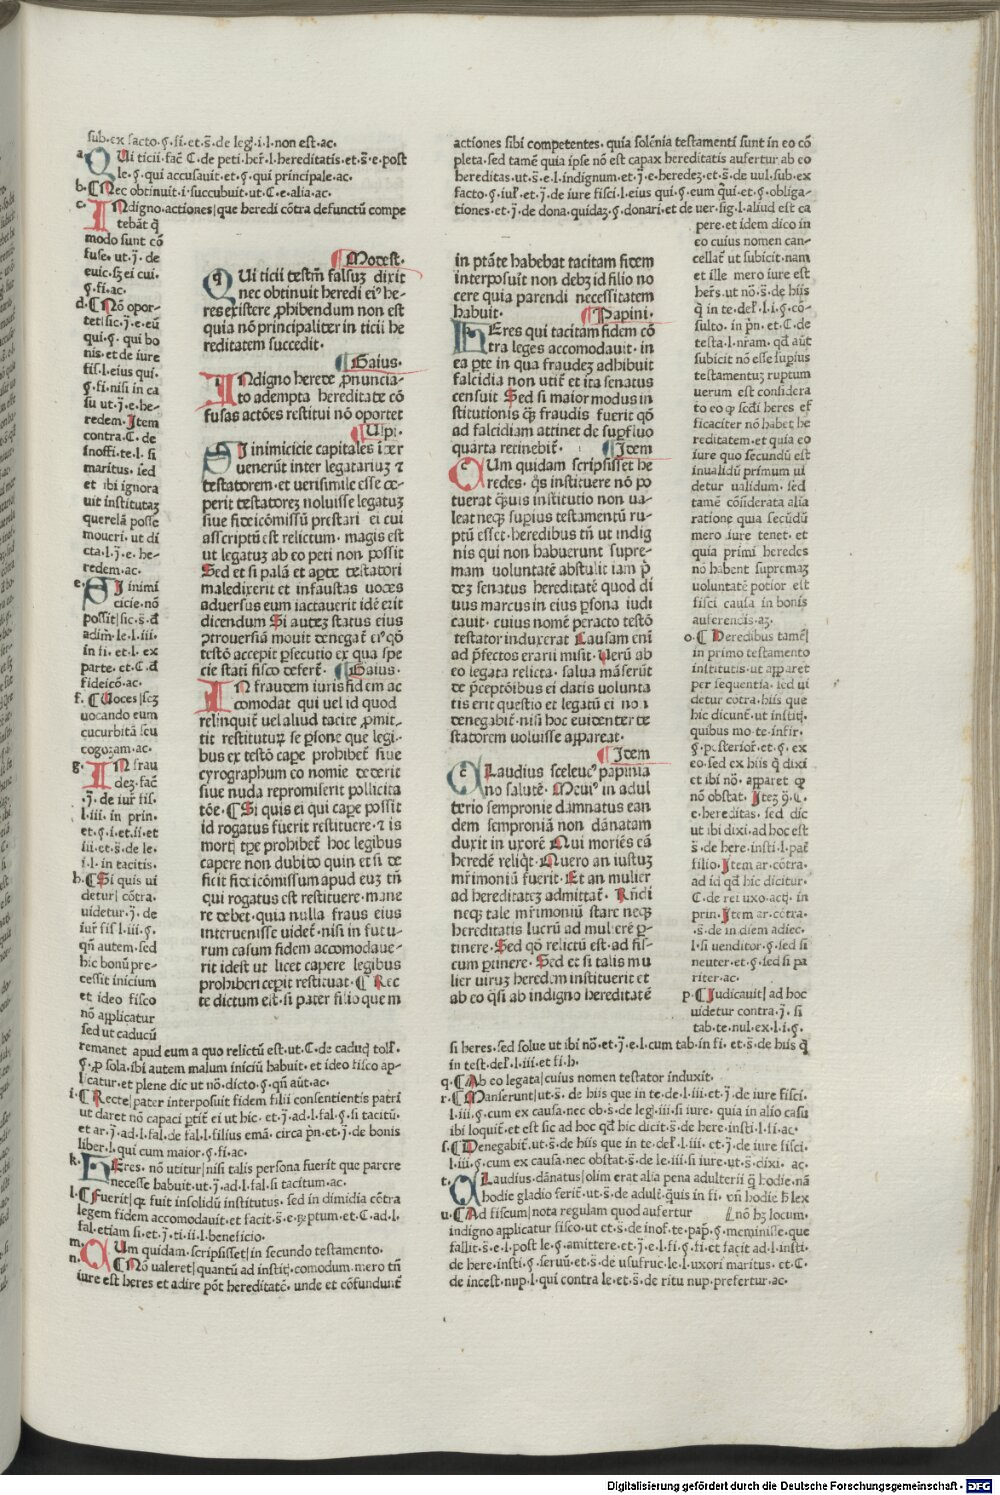 sub.ex facto.§.fi.et.s̄.de leg̃.i.l.non est.ac.
a QUi ticii.fac̃ C.de peti.her̃.l.hereditatis.et.s̄.e.post
le.§.qui accusauit.et.§.qui principale.ac.
b. ¶Nec obtinuit.i.succubuit.ut.C.e.alia.ac.
c. INdigno.actiones|que heredi cõtra defunctũ compe
tebãt q̃
modo sunt cõ
fuse.ut.j̄.de
euic.sꝫ ei cui.
§.fi.ac.
d. ¶Nõ opor-
tet|sic.j̄.e.eũ
qui.§. qui bo
nis.et de iure
fis.l.eius qui.
§.fi.nisi in ca
su ut.j̄.e.he-
redem.Item
contra.C.de
inoffi.te.l.si
maritus. sed
et ibi ignora
uit institutaꝫ
querelã posse
moueri. ut di
cta.l.j̄.e.he-
redem.ac.
e. SI inimi
cicie.nõ
possit|sic.s̄.d̄
adim̃.le.l.iii.
in fi.et.l.ex
parte.et.C.d̄
fideicõ.ac.
f. ¶Uoces|scꝫ
uocando eum
cucurbitã seu
cogozam.ac.
g. IN frau
deꝫ.fac̃
.j̄.de iur̃ fis.
l.iii. in prin.
et.§.i.et.ii.et
iii.et.s̄.de le.
i.l.in tacitis.
h. ¶Si quis ui
detur| cõtra.
uidetur.j̄.de
iur̃ fis̃ l.iii.§.
qñ autem.sed
hic bonũ pre-
cessit inicium
et ideo fisco
nõ applicatur
sed ut caducũ
remanet apud eum a quo relictũ est.ut.C.de caduc̃ toll̃.
§.p sola.ibi autem malum iniciũ habuit.et ideo fisco ap-
licatur.et plene dic ut nõ.dicto.§.qñ aũt.ac.
i. ¶Recte|pater interposuit fidem filii consentientis patri
ut daret nõ capaci ꝑtit̃ ei ut hic.et.j̄.ad.l.fal.§.si tacitũ.
et ar.j̄.ad.l.fal.de fal.l.filius emã.circa pñ.et.j̄.de bonis
liber.l.qui cum maior.§.fi.ac.
k. HEres.nõ utitur|nisi talis persona fuerit que parere
necesse habuit.ut.j̄.ad.l.fal.si tacitum.ac.
l. ¶Fuerit|ꝙ fuit insolidũ institutus.sed in dimidia cõtra
legem fidem accomodauit.et facit.s̄.e.ꝑeptum.et.C.ad.l.
fal.etiam si.et.j̄.ti.ii.l.beneficio.
m. QUm quidam.scripsisset|in secundo testamento.
n. ¶Nõ ualeret|quantũ ad instit̃q.comodum.mero tñ
iure est heres et adire põt hereditatẽ.unde et cõfundunt̃
¶Motest.
QUi ticii testm̃ falsuꝫ dixit
nec obtinuit heredi ei⁹ he-
res existere ꝓhibendum non est
quia nõ principaliter in ticii he
reditatem succedit.
¶Gaius.
INdigno herede ꝓnuncia-
to adempta hereditate cõ
fusas actões restitui nõ oportet
¶Ulpi.
SI inimicicie capitales inter
uenerũt inter legatariuꝫ ⁊
testatorem.et uerisimile esse ce-
perit testatoreꝫ noluisse legatuꝫ
siue fideicõmissũ prestari ei cui
asscriptũ est relictum.magis est
ut legatuꝫ ab eo peti non possit
Sed et si palã et aꝑte testatori
maledixerit et infaustas uoces
aduersus eum iactauerit idẽ erit
dicendum Si auteꝫ status eius
ꝓtrouersiã mouit denegat̃ ei⁹ qõ
testõ accepit ꝑsecutio ex qua spe
cie stati fisco defert̃. ¶Gaius.
IN fraudem iuris fidem ac
comodat qui uel id quod
relinquit̃ uel aliud tacite ꝓmit-
tit restituturuꝫ se ꝑsone que legi-
bus ex testõ caꝑe prohibet̃ siue
cyrographum eo nomie dederit
siue nuda repromiserit pollicita
tõe. ¶Si quis ei qui caꝑe possit
id rogatus fuerit restituere.⁊ is
mortꝭ tꝑe prohibet̃ hoc legibus
capere non dubito quin et si de
ficit fideicõmissum apud euꝫ tñ
qui rogatus est restituere.mane
re debet.quia nulla fraus eius
interuenisse uidet̃.nisi in futu-
rum casum fidem accomodaue-
rit idest ut licet capere legibus
prohiberi ceꝑit restituat. ¶Rec
te dictum est.si pater filio quem
actiones sibi competentes.quia solẽnia testamenti sunt in eo cõ
pleta.sed tamẽ quia ipse nõ est capax hereditatis aufertur ab eo
hereditas.ut.s̄.e.l.indignum.et.j̄.e.heredeꝫ.et.s̄.de uul.sub.ex
facto.§.iul̃.et.j̄.de iure fisci.l.eius qui.§.eum q̃ui.et.§.obliga-
tiones.et.j̄.de dona.quidaꝫ.§.donari.et de uer.sig.l.aliud est ca
pere.et idem dico in
eo cuius nomen can-
cellat̃ ut subicit.nam
et ille mero iure est
her̃s.ut nõ.s̄.de hiis
q̃ in te.del̃.l.i.§.cõ-
sulto.in p̃n.et.C.de
testa.l.nr̃am. qd̃ aũt
subicit nõ esse suꝑius
testamentuꝫ ruptum
uerum est considera
to eo ꝙ secũdi heres ef
ficaciter nõ habet he
reditatem.et quia eo
iure quo secundũ est
inualidũ primum ui
detur ualidum. sed
tamẽ cõsiderata alia
ratione quia secũdũ
mero iure tenet.et
quia primi heredes
nõ habent supremaꝫ
uoluntatẽ potior est
fisci causa in bonis
auferendis.aꝫ.
o. ¶Heredibus tamẽ|
in primo testamento
institutis.ut apparet
per sequentia.sed ui
detur cõtra.hiis que
hic dicunt̃.ut institq̃.
quibus mo.te.infir.
§.posterior̃.et.§.ex
eo.sed ex hiis q̃ dixi
et ibi nõ. apparet ꝙ
nõ obstat. Iteꝫ ꝟ.C.
e.hereditas. sed dic
ut ibi dixi.ad hoc est
s̄.de here.insti.l.pat̃
filio.Item ar.cõtra.
ad id qd̃ hic dicitur.
C.de rei uxo.actꝭ.in
prin.Item ar.cõtra.
s̄.de in diem adiec.
l.si uenditor.§.sed si
neuter.et.§.sed si pa
riter.ac.
p. ¶Iudicauit|ad hoc
uidetur contra.j̄. si
tab.te.nul.ex.l.i.§.
si heres.sed solue ut ibi nõ.et.j̄.e.l.cum tab.in fi.et.s̄.de hiis q̃
in test.del̃.l.iii.et fi.h.
q. ¶Ab eo legata|cuius nomen testator induxit.
r. ¶Manserunt|ut.s̄.de hiis que in te.de.l.iii.et.j̄.de iure fisci.
l.iii.§.cum ex causa.nec ob.s̄.de leg̃.iii.si iure. quia in alio casu
ibi loquit̃.et est sic ad hoc qd̃ hic dicit̃.s̄.de here.insti.l.fi.ac.
s. ¶Denegabit̃.ut.s̄.de hiis que in te.del̃.l.iii.et.j̄.de iure fisci.
l.iii.§.cum ex causa.nec obstat.s̄.de le.iii.si iure.ut.s̄.dixi. ac.
t. CLaudius.dãnatus|olim erat alia pena adulterii q̃ hodie.nã
hodie gladio ferit̃.ut.s̄.de adult̃.q̃uis in fi.uñ hodie h̃ lex
u. ¶Ad fiscum|nota regulam quod aufertur nõ hꝫ locum.
indigno applicatur fisco.ut et.s̄.de inof.te.pap̃.§.meminisse.que
fallit.s̄.e.l.post le.§.amittere.et.j̄.e.l.fi.§.fi.et facit ad.l.insti.
de here.insti.§.seruũ.et.s̄.de usufruc.le.l.uxori maritus.et.C.
de incest.nup.l.qui contra le.et.s̄.de ritu nup.prefertur.ac.
in ptãte habebat tacitam fidem
interposuit̃ non debꝫ id filio no
cere quia parendi necessitatem
habuit. ¶Papini.
HEres qui tacitam fidem cõ
tra leges accomodauit.in
ea ꝑte in qua fraudeꝫ adhibuit
falcidia non utit̃ et ita senatus
censuit Sed si maior modus in
stitutionis q̃ fraudis fuerit qõ
ad falcidiam attinet de suꝑfluo
quarta retinebit̃. ¶Item
CUm quidam scripsisset he
redes. q̃s instituere nõ po
tuerat q̃uis institutio non ua-
leat neqꝫ suꝑius testamentũ ru-
ptũ esset.heredibus tñ ut indig
nis qui non habuerunt supre-
mam uoluntatẽ abstulit iam p̃
deꝫ senatus hereditatẽ quod di
uus marcus in eius ꝑsona iudi
cauit.cuius nomẽ peracto testõ
testator induxerat Causam eni
ad p̃fectos erarii misit. Uerũ ab
eo legata relicta.salua mãserũt
de p̃ceptõibus ei datis uolunta
tis erit questio et legatũ ei non
denegabit̃.nisi hoc euidenter te
statorem uoluisse appareat.
¶Item
CLaudius sceleuc⁹ papinia
no salutẽ. Meui⁹ in adul
terio sempronie damnatus ean
dem semproniã non dãnatam
duxit in uxorẽ Qui moriẽs eã
heredẽ reliqt̃.Quero an iustuꝫ
mr̃imoniũ fuerit.Et an mulier
ad hereditateꝫ admittat̃. Rñdi
neqꝫ tale mr̃imoniũ stare neqꝫ
hereditatis lucrũ ad mulierẽ ꝑ-
tinere.Sed qõ relictũ est.ad fis-
cum ꝑtinere.Sed et si talis mu
lier uiruꝫ heredem instituerit et
ab eo q̃si ab indigno hereditatẽ
Digitalisierung gefördert durch die Deutsche Forschungsgemeinschaft - DFG